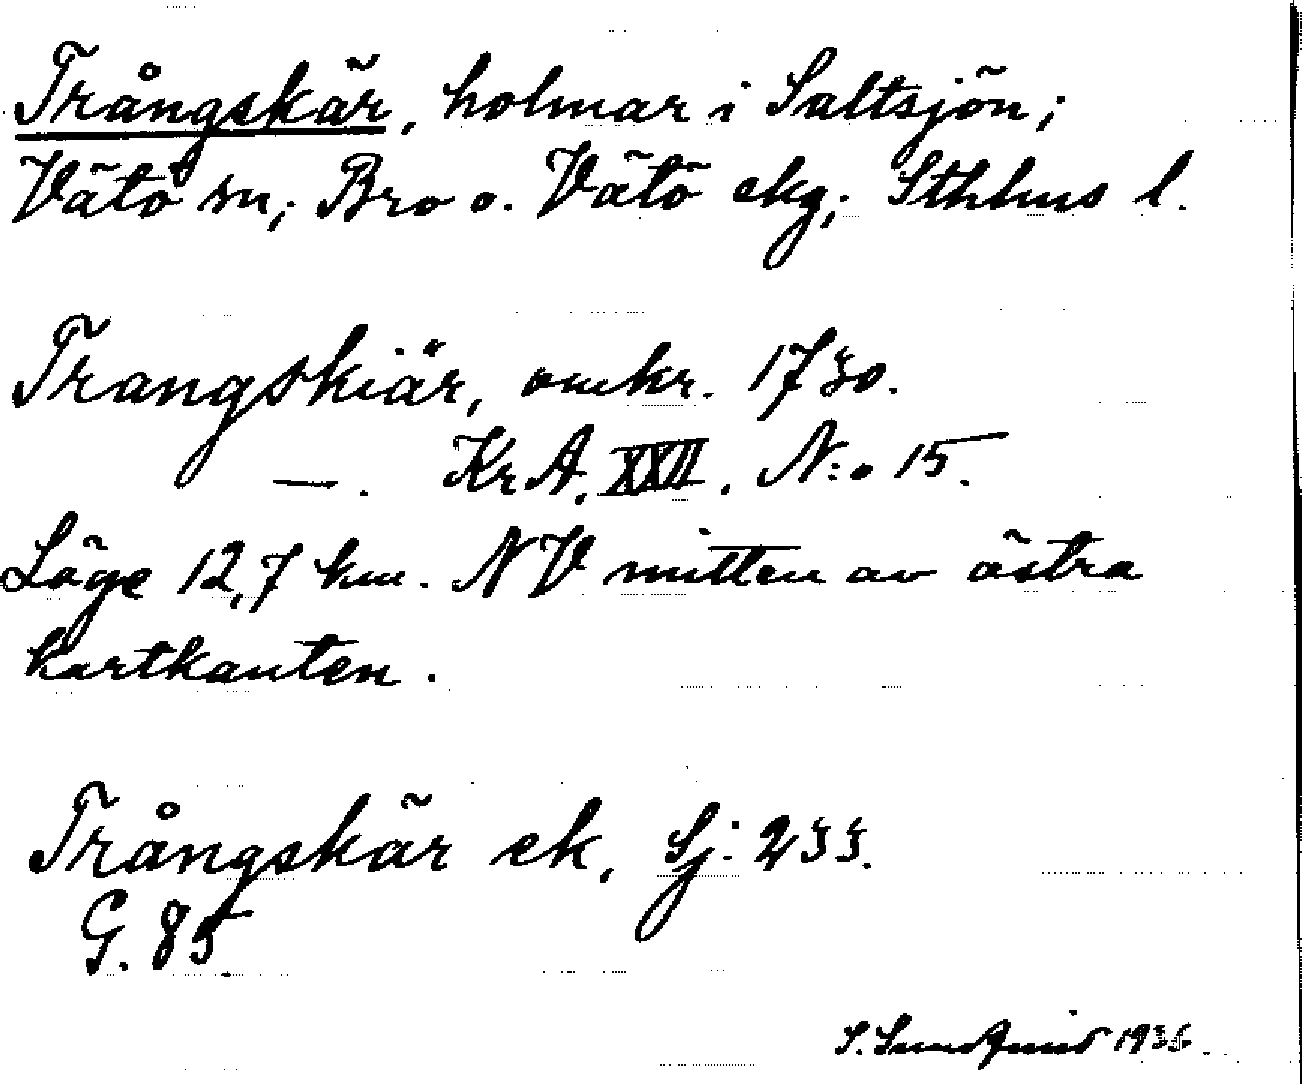 Trångskär, holmar i Saltsjön;
Vätö sn; Bro o. Vätö skg; Sthlms l.
Trangskiär, omkr. 1730.
—. Kr A. XXII. N:o 15.
Läge 12,7 km. NV mitten av östra
kartkanten.
Trångskär ek. Sj: 233.
G. 85.
S. Sundqvist 1936.